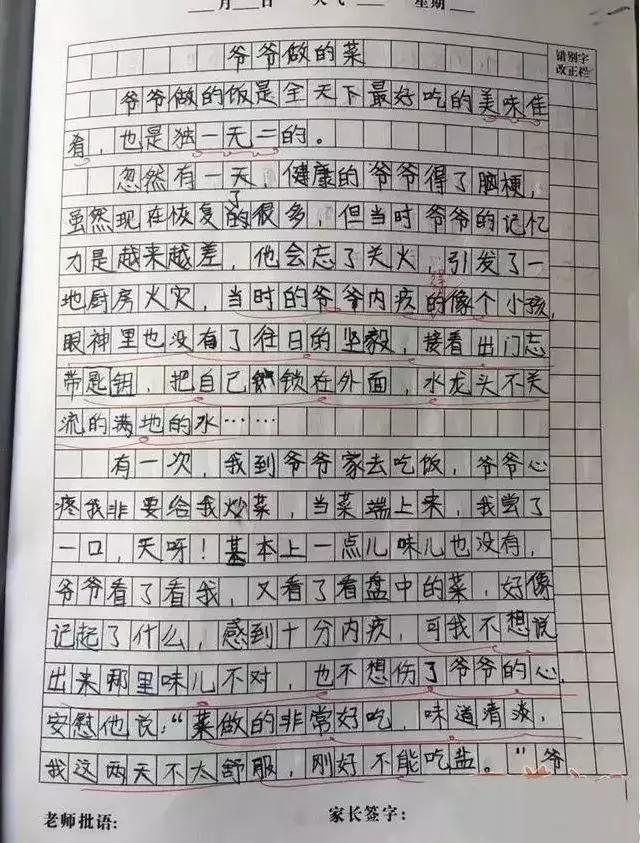 月 日 天气 星期
错别字
改正栏
爷爷做的菜
爷爷做的饭是全天下最好吃的美味佳
肴，也是独一无二的。
忽然有一天，健康的爷爷得了脑梗，
虽然现在恢复了的很多，但当时爷爷的记忆
力是越来越差，他会忘了关火，引发了一
地厨房火灾，当时的爷爷内疚的像个小孩，
眼神里也没有了往日的坚毅，接着出门忘
带匙钥，把自己锁在外面，水龙头不关
流的满地的水……
有一次，我到爷爷家去吃饭，爷爷心
疼我非要给我炒菜，当菜端上来，我尝了
一口，天呀！基本上一点儿味儿也没有，
爷爷看了看我，又看了看盘中的菜，好像
记起了什么，感到十分内疚，可我不想说
出来那里味儿不对，也不想伤了爷爷的心，
安慰他说：“菜做的非常好吃，味道清淡，
我这两天不太舒服，刚好不能吃盐。”爷
老师批语： 家长签字：